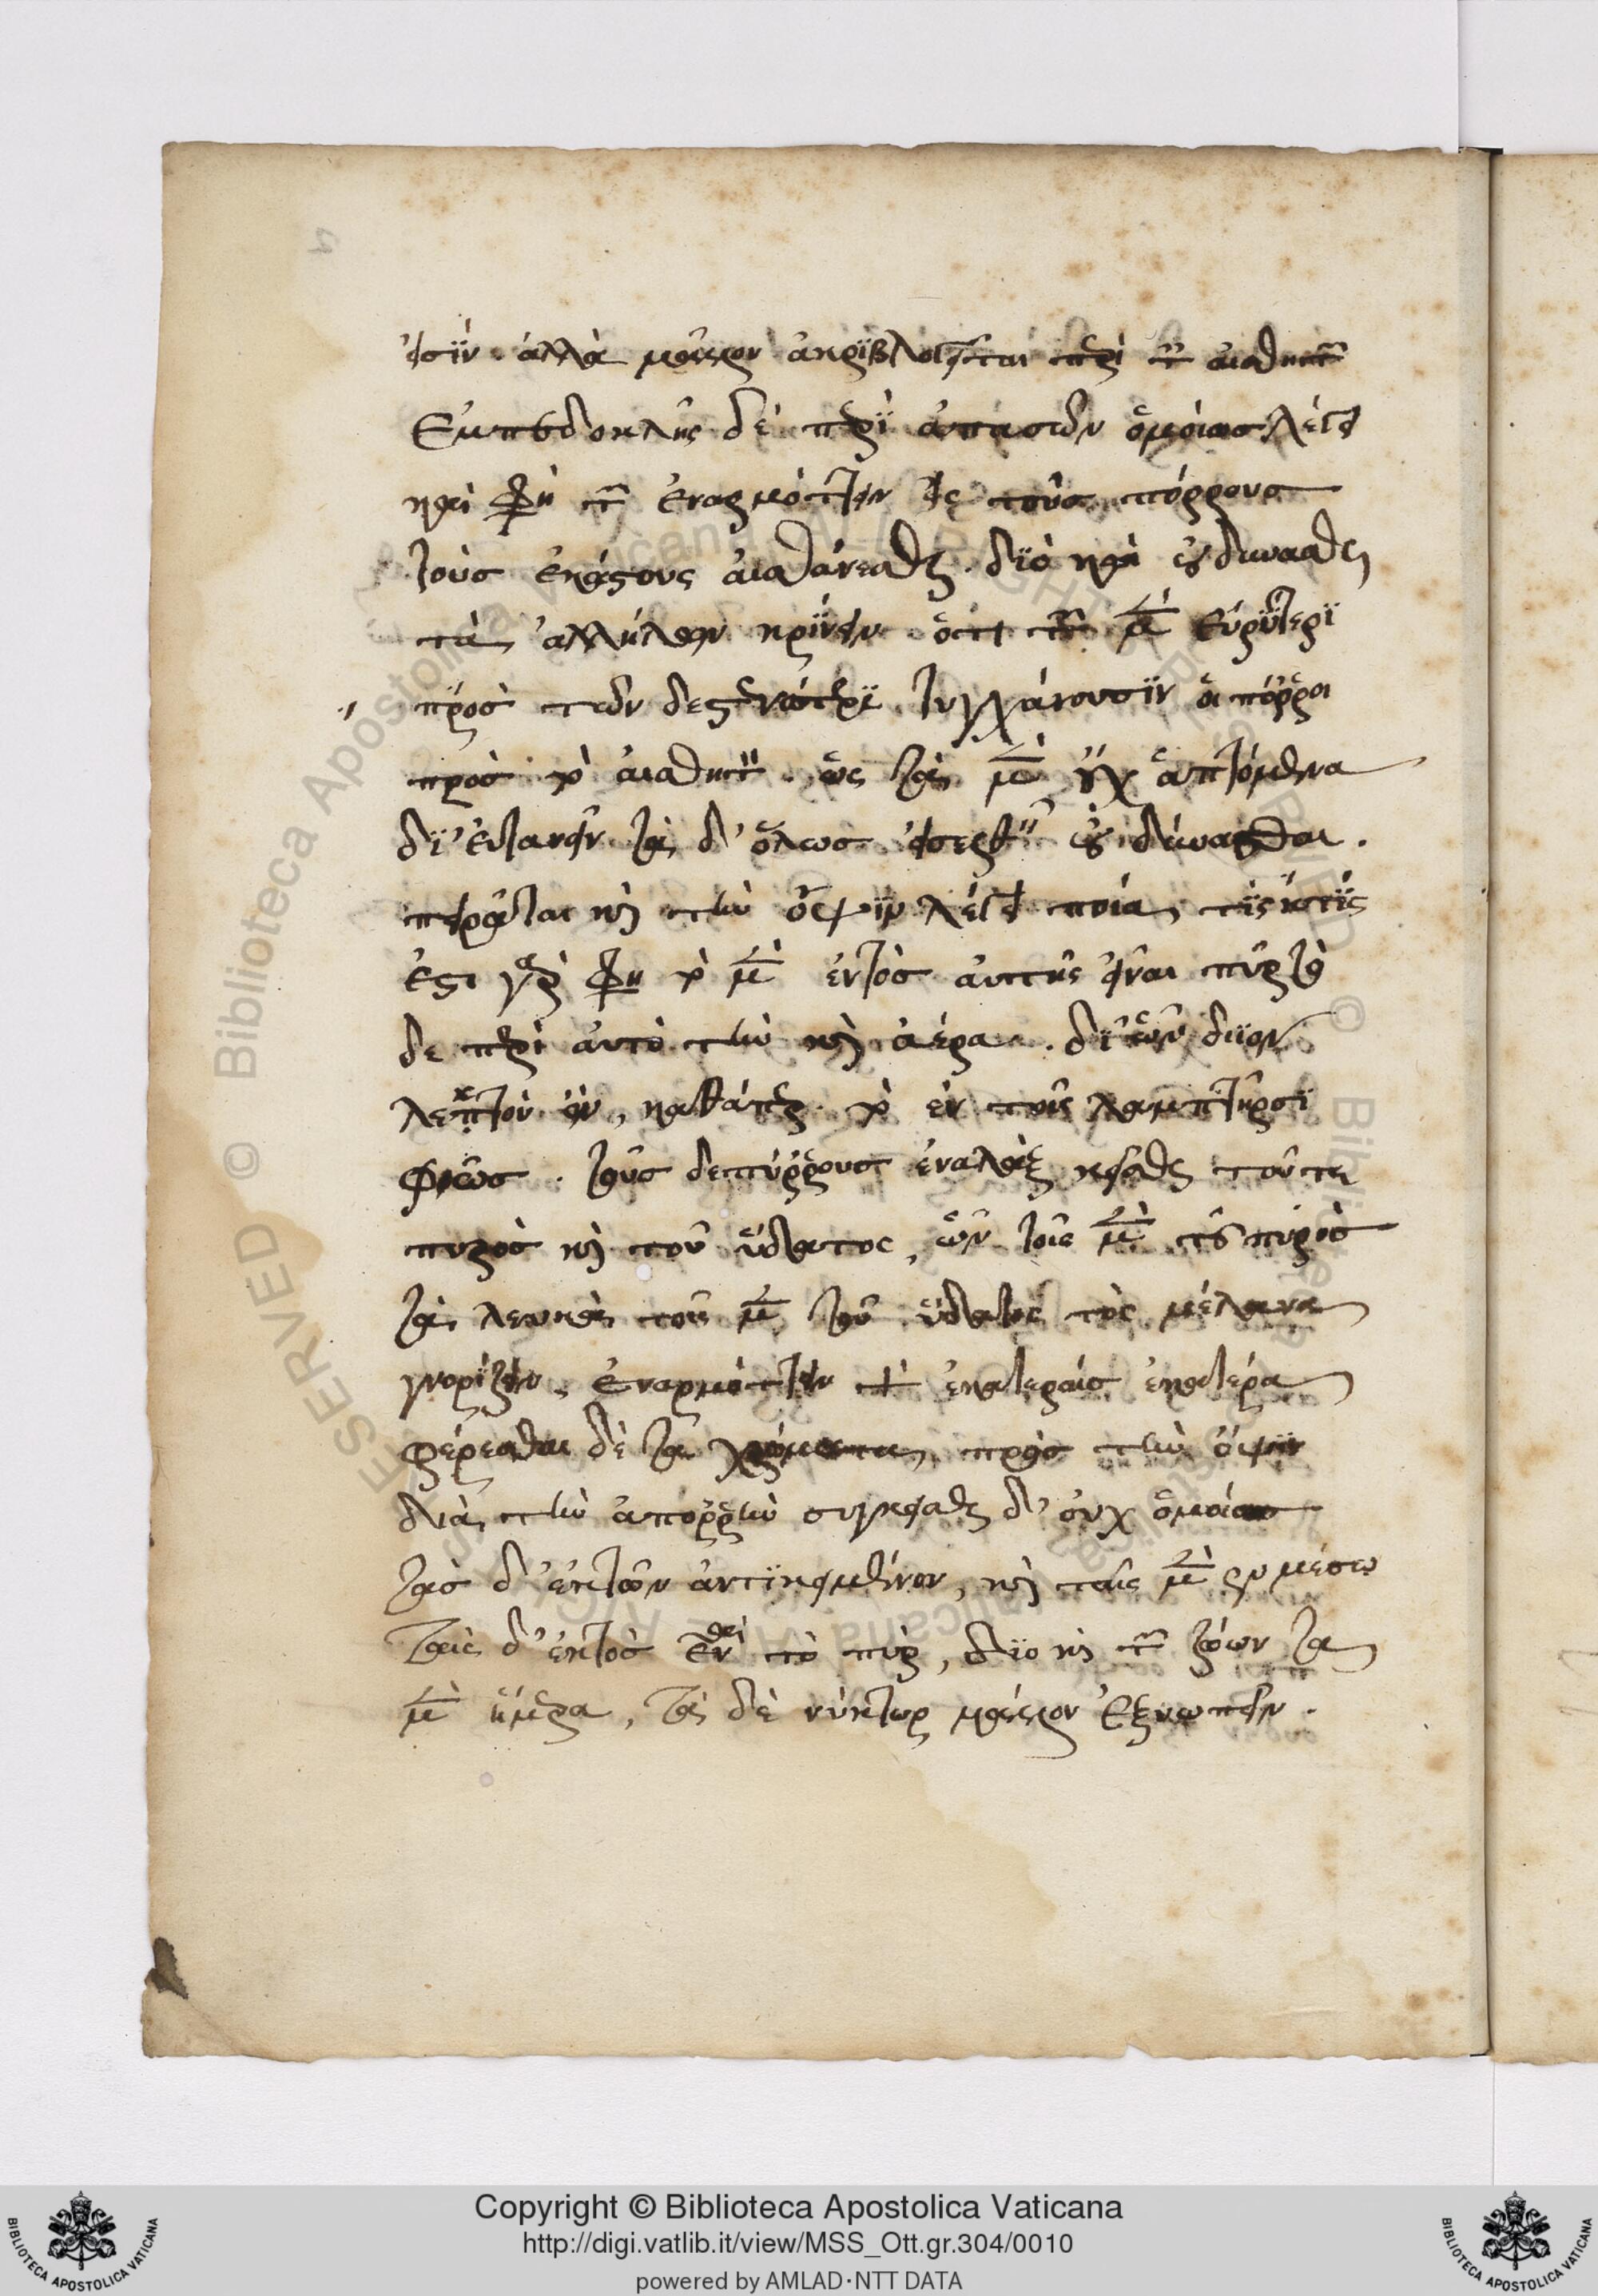 εἰσϊν. ἀλλὰ μᾶλλον ἀκριβολογεῖται περὶ τῶν αἰσθητῶν
Ἐμπεδοκλῆς δὲ περὶ ἁπασῶν ὁμοίως λέγει
καὶ φησὶ τῶ ἐναρμόττειν εἰς τοὺς πόρρους
τοὺς ἑκάστους αἰσθάνεσθαι. δϊὸ καὶ οὐ δύνασθαι
τὰ ἀλλήλων κρίνειν ὅτι τῶν μὲν εὐρύτεροι
πρὸς τῶν δε στενώτεροι τυγχάνουσϊν οἱ πόρροι
πρὸς τὸ αἰσθητόν. ὡς τὰ μὲν οὐχ ἁπτόμενα
δϊευτονεῖν τὰ δ' ὅλως εἰσελθεῖν οὐ δύνασθαι.
πειρᾶται καὶ τὴν ὄψϊν λέγει ποία τϊς ἐστϊς
ἔστι γὰρ φησὶ τὸ μὲν ἐντὸς αὐτῆς εἶναι πῦρ τὸ
δε περὶ αὐτὸ τὴν καὶ ἀέρα. δϊ' ὧν διϊὸν
λεπτὸν ὂν, καθάπερ τὸ ἐν τοῖς λαμπτῆρσϊ
φῶς. τοὺς δε πόρρους ἐναλλὰξ κεῖσθαι τοῦ τε
πυρὸς καὶ τοῦ ὕδατος, ὧν τοῖς μὲν τοῦ πυρὸς
τὰ λευκὰ τοῖς μὲν τοῦ ὕδατος τὰ μέλανα
γνορίζειν, ἐναρμόττειν γὰρ ἑκατεραίς ἑκατέρα
φέρεσθαι δὲ τὰ χρώματα πρὸς τὴν ὄψϊν
διὰ τὴν ἀπορρὴν συγκεῖσθαι δ' οὐχ ὁμοίως
τὰς δ' ἐκ τῶν ἀντϊκειμένων, καὶ ταῖς μὲν ἐν μέσω
ταῖς δ' ἐκτὸς εἶναι τὸ πῦρ, δϊο καὶ τῶν ζώων τὰ
μὲν ἡμέρα, τὰ δὲ νύκτωρ μᾶλλον ὀξυωπεῖν.
Copyright © Biblioteca Apostolica Vaticana
http://digi.vatlib.it/view/MSS_Ott.gr.304/0010
powered by AMLAD·NTT DATA